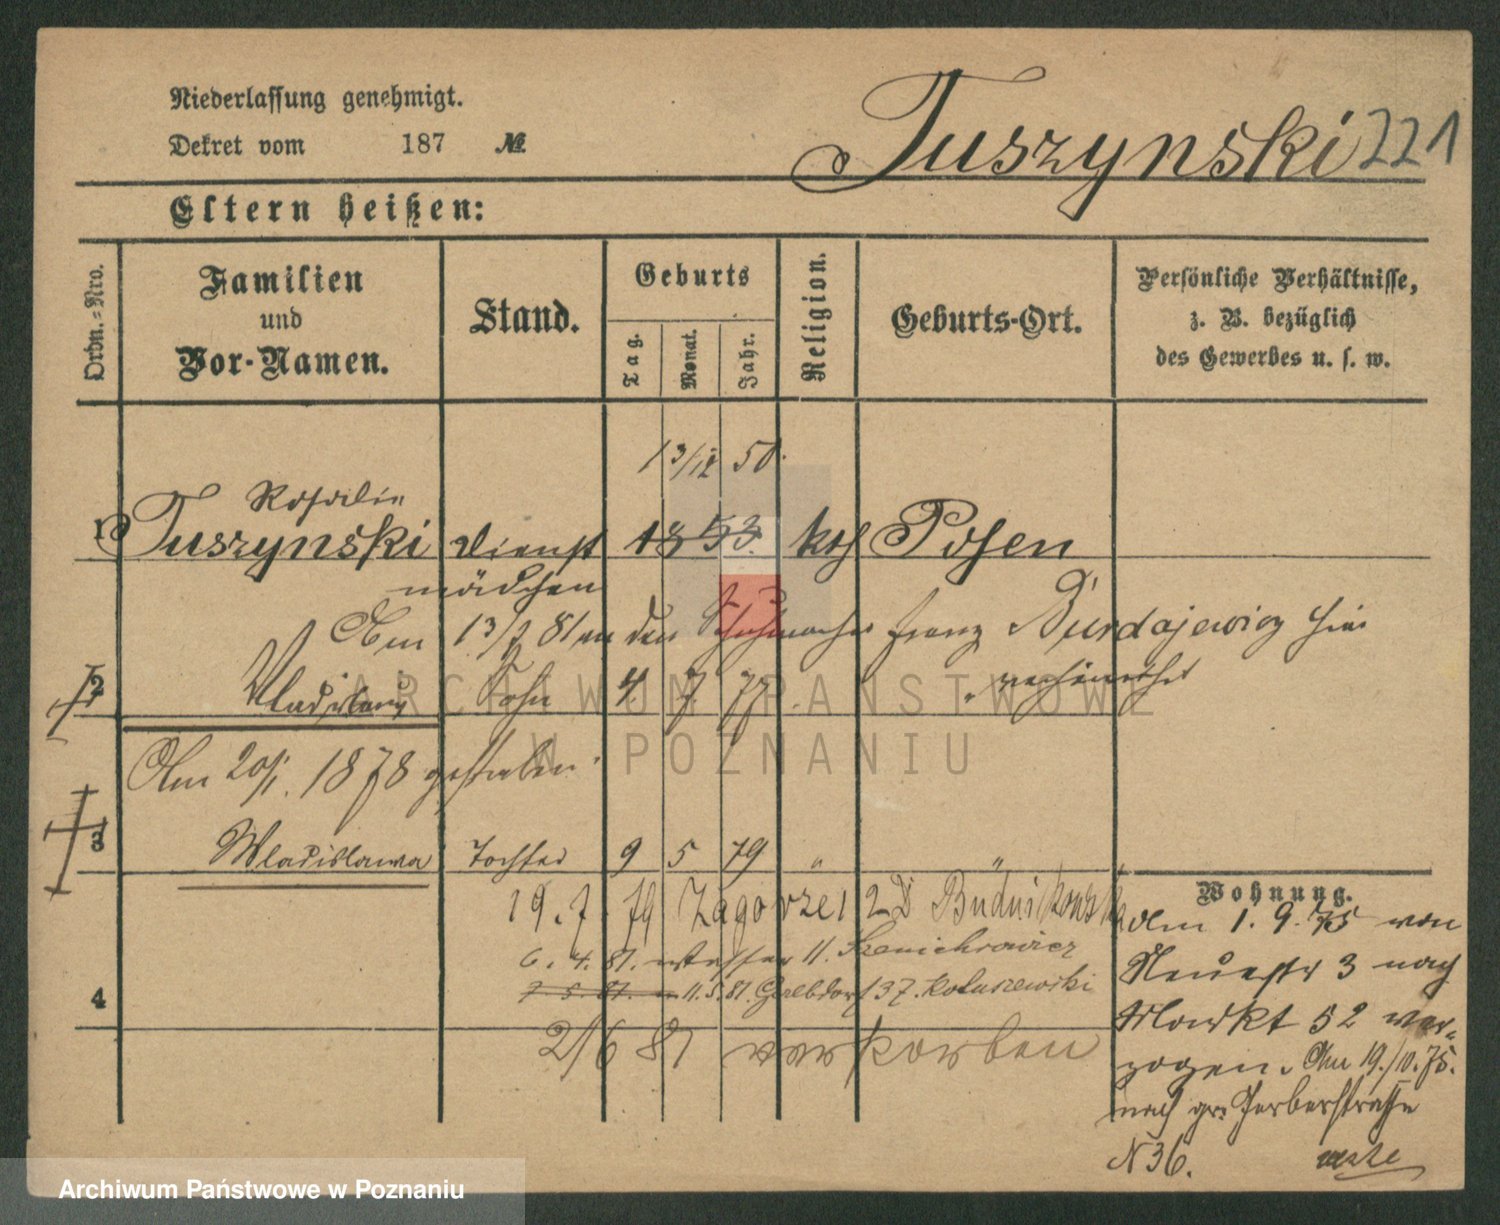 Niederlassung genehmigt.
Dekret vom 187 №
Tuszynski 221
Eltern heißen:
Ordn.=Nro.
Familien
und
Vor-Namen.
Stand.
Geburts
Tag.
Monat.
Jahr.
Religion.
Geburts-Ort.
Persönliche Verhältnisse,
z. B. bezüglich
des Gewerbes u. s. w.
13/12 50.
Rosalie
1 Tuszynski Dienst 1853. kth Posen
mädchen
Am 13/7 81 an den Schuhmacher Franz Burdajewicz hier
verheirathet
2 Wladislaus Sohn 4. 7. 77.
Am 20/1. 1878 gestorben.
3 Wladislawa Tochter 9 5 79 " "
19. 7. 79 Zagorze 12 D Budnikowska
6. 4. 81. 11. Szenichrowicz
7. 5. 81. 11. 5. 81. Gerbdorf 137. Koluszewski
4
2/6 81 verstorben
Wohnung.
Am 1. 9. 75 von
Neuestr 3 nach
Markt 52 ver-
zogen. Am 19./10. 75.
nach gr. Gerberstraße
N 36.
ARCHIWUM PAŃSTWOWE
W POZNANIU
Archiwum Państwowe w Poznaniu